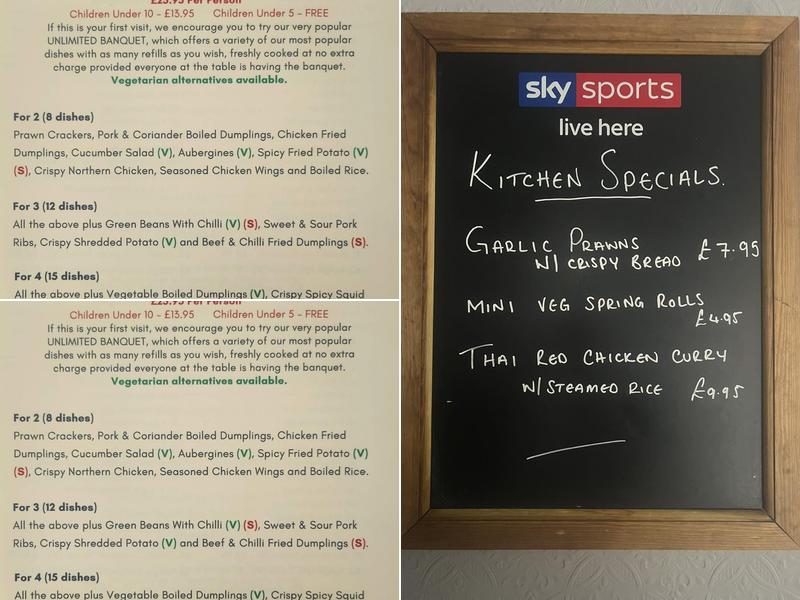 £23.95 Per Person
Children Under 10 - £13.95 Children Under 5 - FREE
If this is your first visit, we encourage you to try our very popular
UNLIMITED BANQUET, which offers a variety of our most popular
dishes with as many refills as you wish, freshly cooked at no extra
charge provided everyone at the table is having the banquet.
Vegetarian alternatives available.
For 2 (8 dishes)
Prawn Crackers, Pork & Coriander Boiled Dumplings, Chicken Fried
Dumplings, Cucumber Salad (V), Aubergines (V), Spicy Fried Potato (V)
(S), Crispy Northern Chicken, Seasoned Chicken Wings and Boiled Rice.
For 3 (12 dishes)
All the above plus Green Beans With Chilli (V) (S), Sweet & Sour Pork
Ribs, Crispy Shredded Potato (V) and Beef & Chilli Fried Dumplings (S).
For 4 (15 dishes)
All the above plus Vegetable Boiled Dumplings (V), Crispy Spicy Squid
£23.95 Per Person
Children Under 10 - £13.95 Children Under 5 - FREE
If this is your first visit, we encourage you to try our very popular
UNLIMITED BANQUET, which offers a variety of our most popular
dishes with as many refills as you wish, freshly cooked at no extra
charge provided everyone at the table is having the banquet.
Vegetarian alternatives available.
For 2 (8 dishes)
Prawn Crackers, Pork & Coriander Boiled Dumplings, Chicken Fried
Dumplings, Cucumber Salad (V), Aubergines (V), Spicy Fried Potato (V)
(S), Crispy Northern Chicken, Seasoned Chicken Wings and Boiled Rice.
For 3 (12 dishes)
All the above plus Green Beans With Chilli (V) (S), Sweet & Sour Pork
Ribs, Crispy Shredded Potato (V) and Beef & Chilli Fried Dumplings (S).
For 4 (15 dishes)
All the above plus Vegetable Boiled Dumplings (V), Crispy Spicy Squid
sky sports
live here
KITCHEN SPECIALS.
GARLIC PRAWNS
W/ CRISPY BREAD £7.95
MINI VEG SPRING ROLLS
£4.95
THAI RED CHICKEN CURRY
W/ STEAMED RICE £9.95